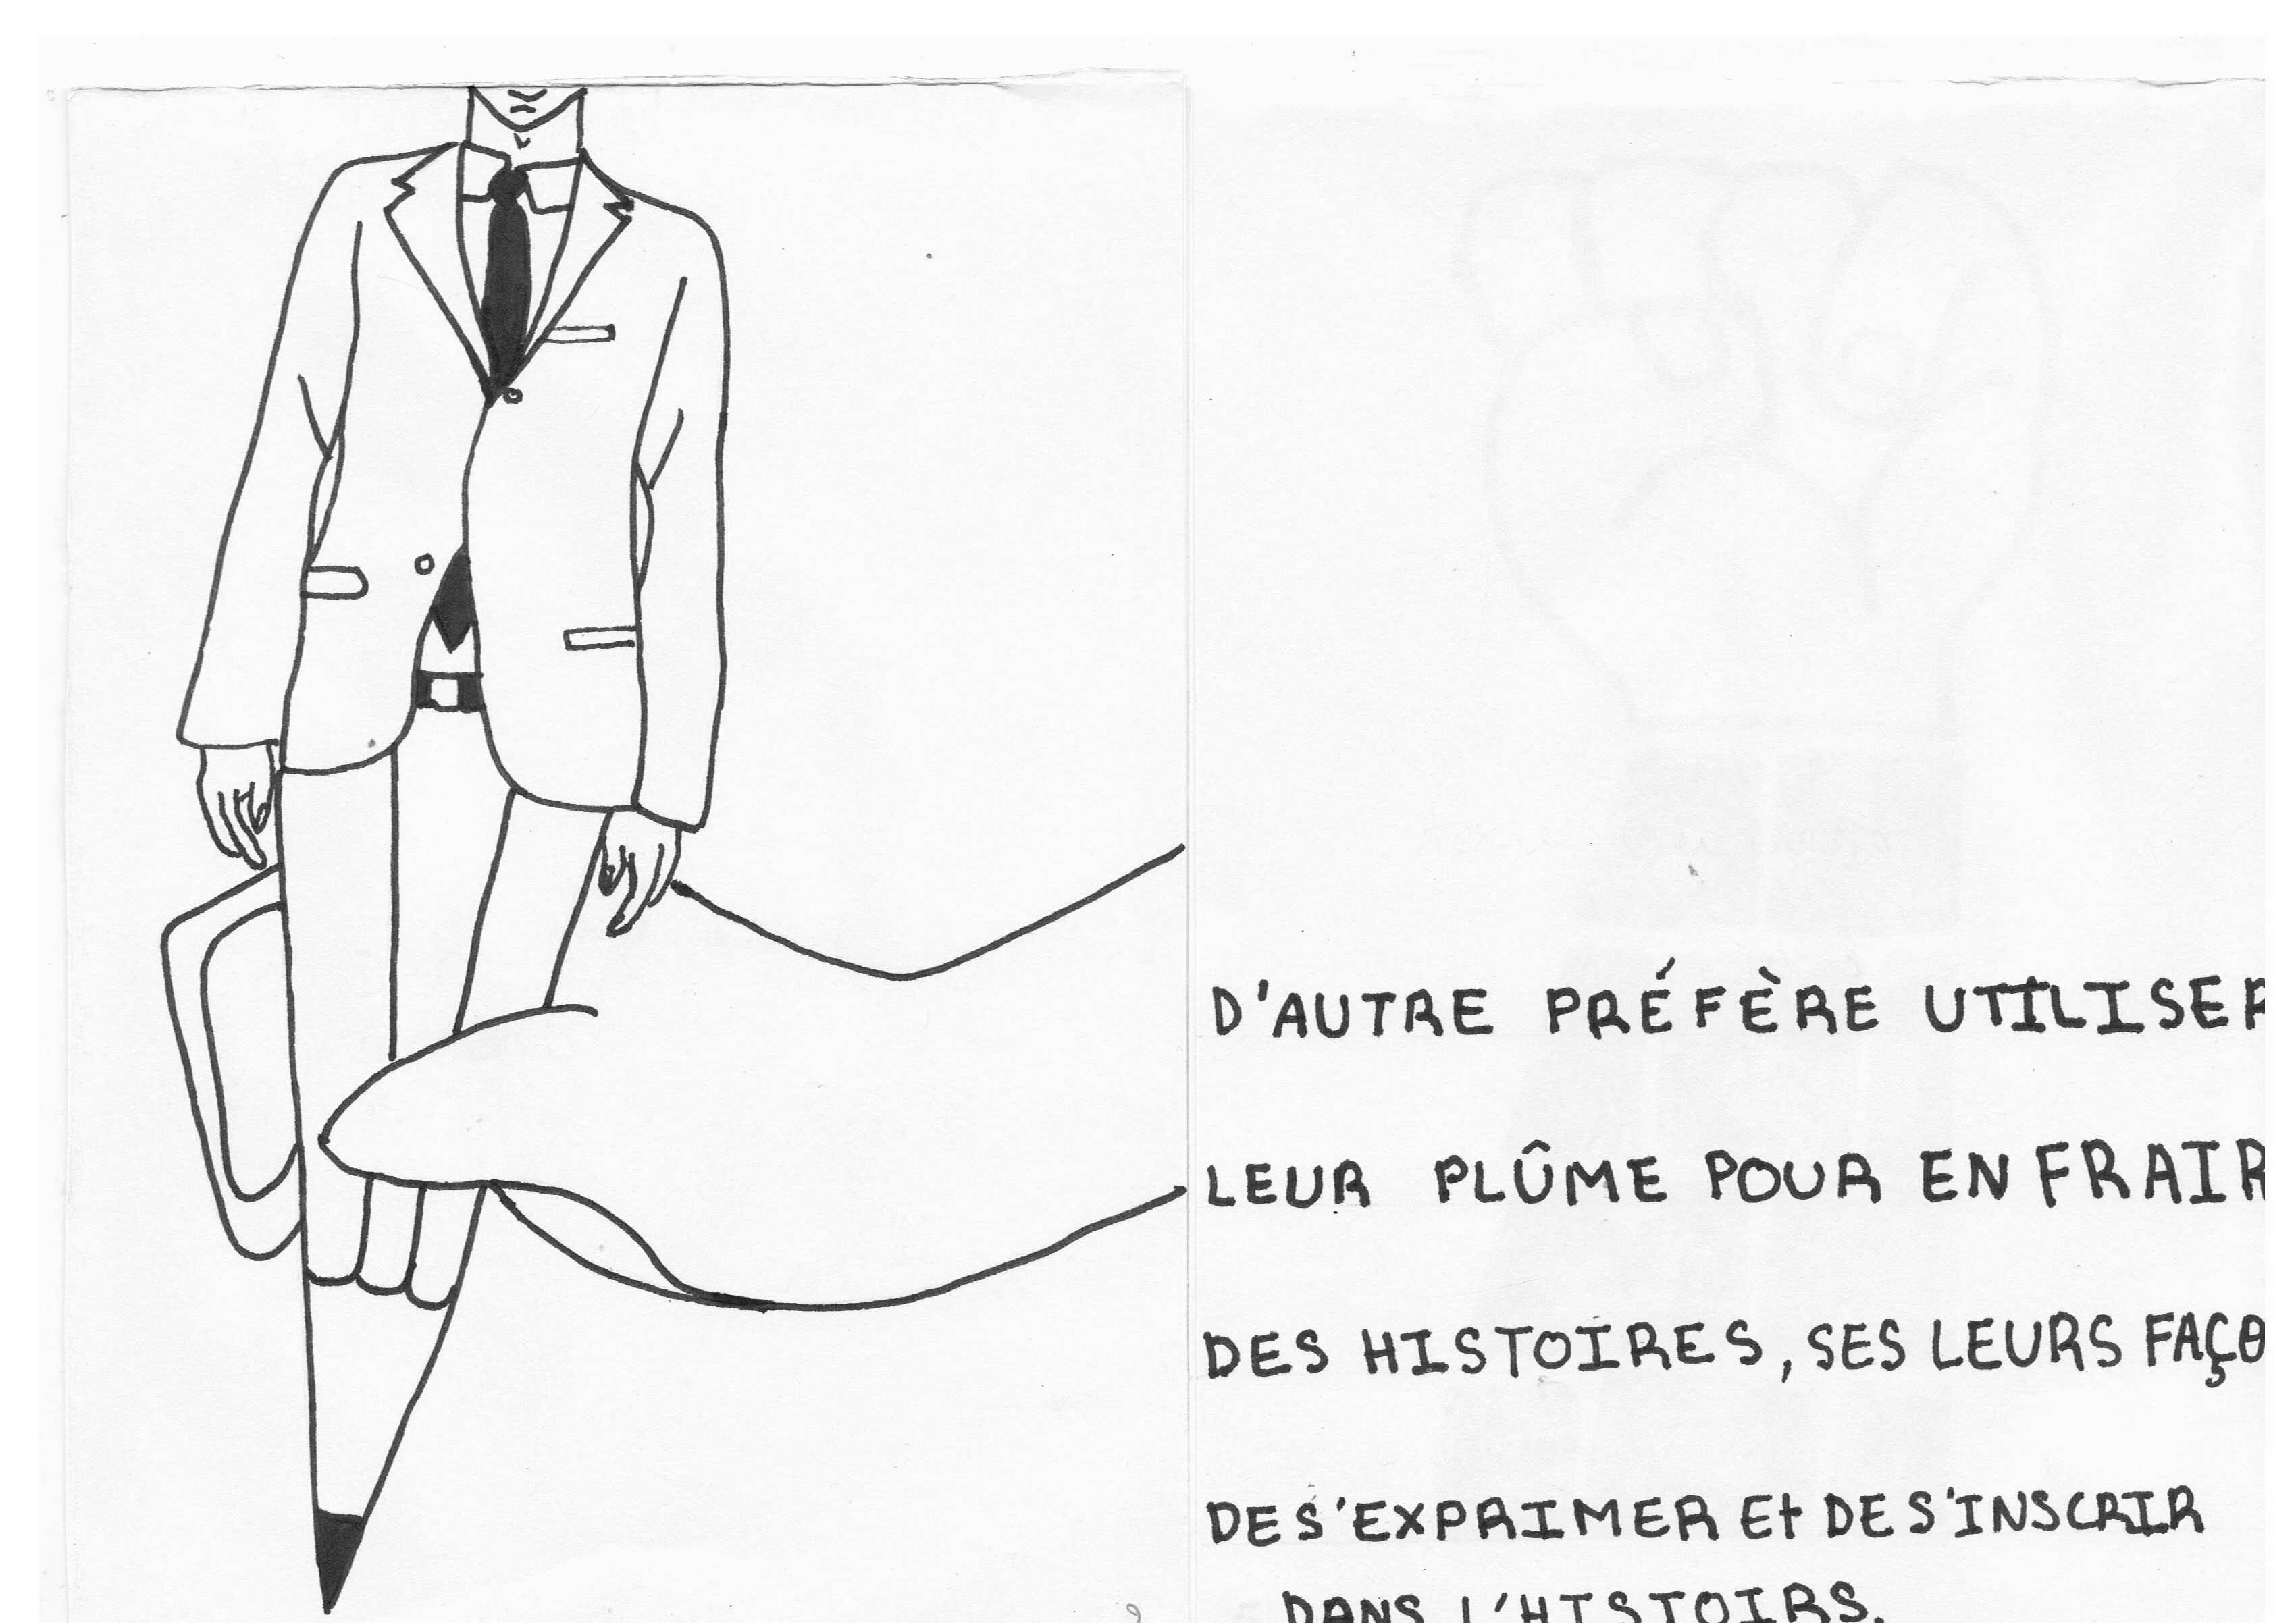 D'AUTRE PRÉFÈRE UTILISER
LEUR PLÛME POUR EN FRAIR
DES HISTOIRES, SES LEURS FAÇO
DE S'EXPRIMER Et DE S'INSCRIR
DANS L'HISTOIRS.